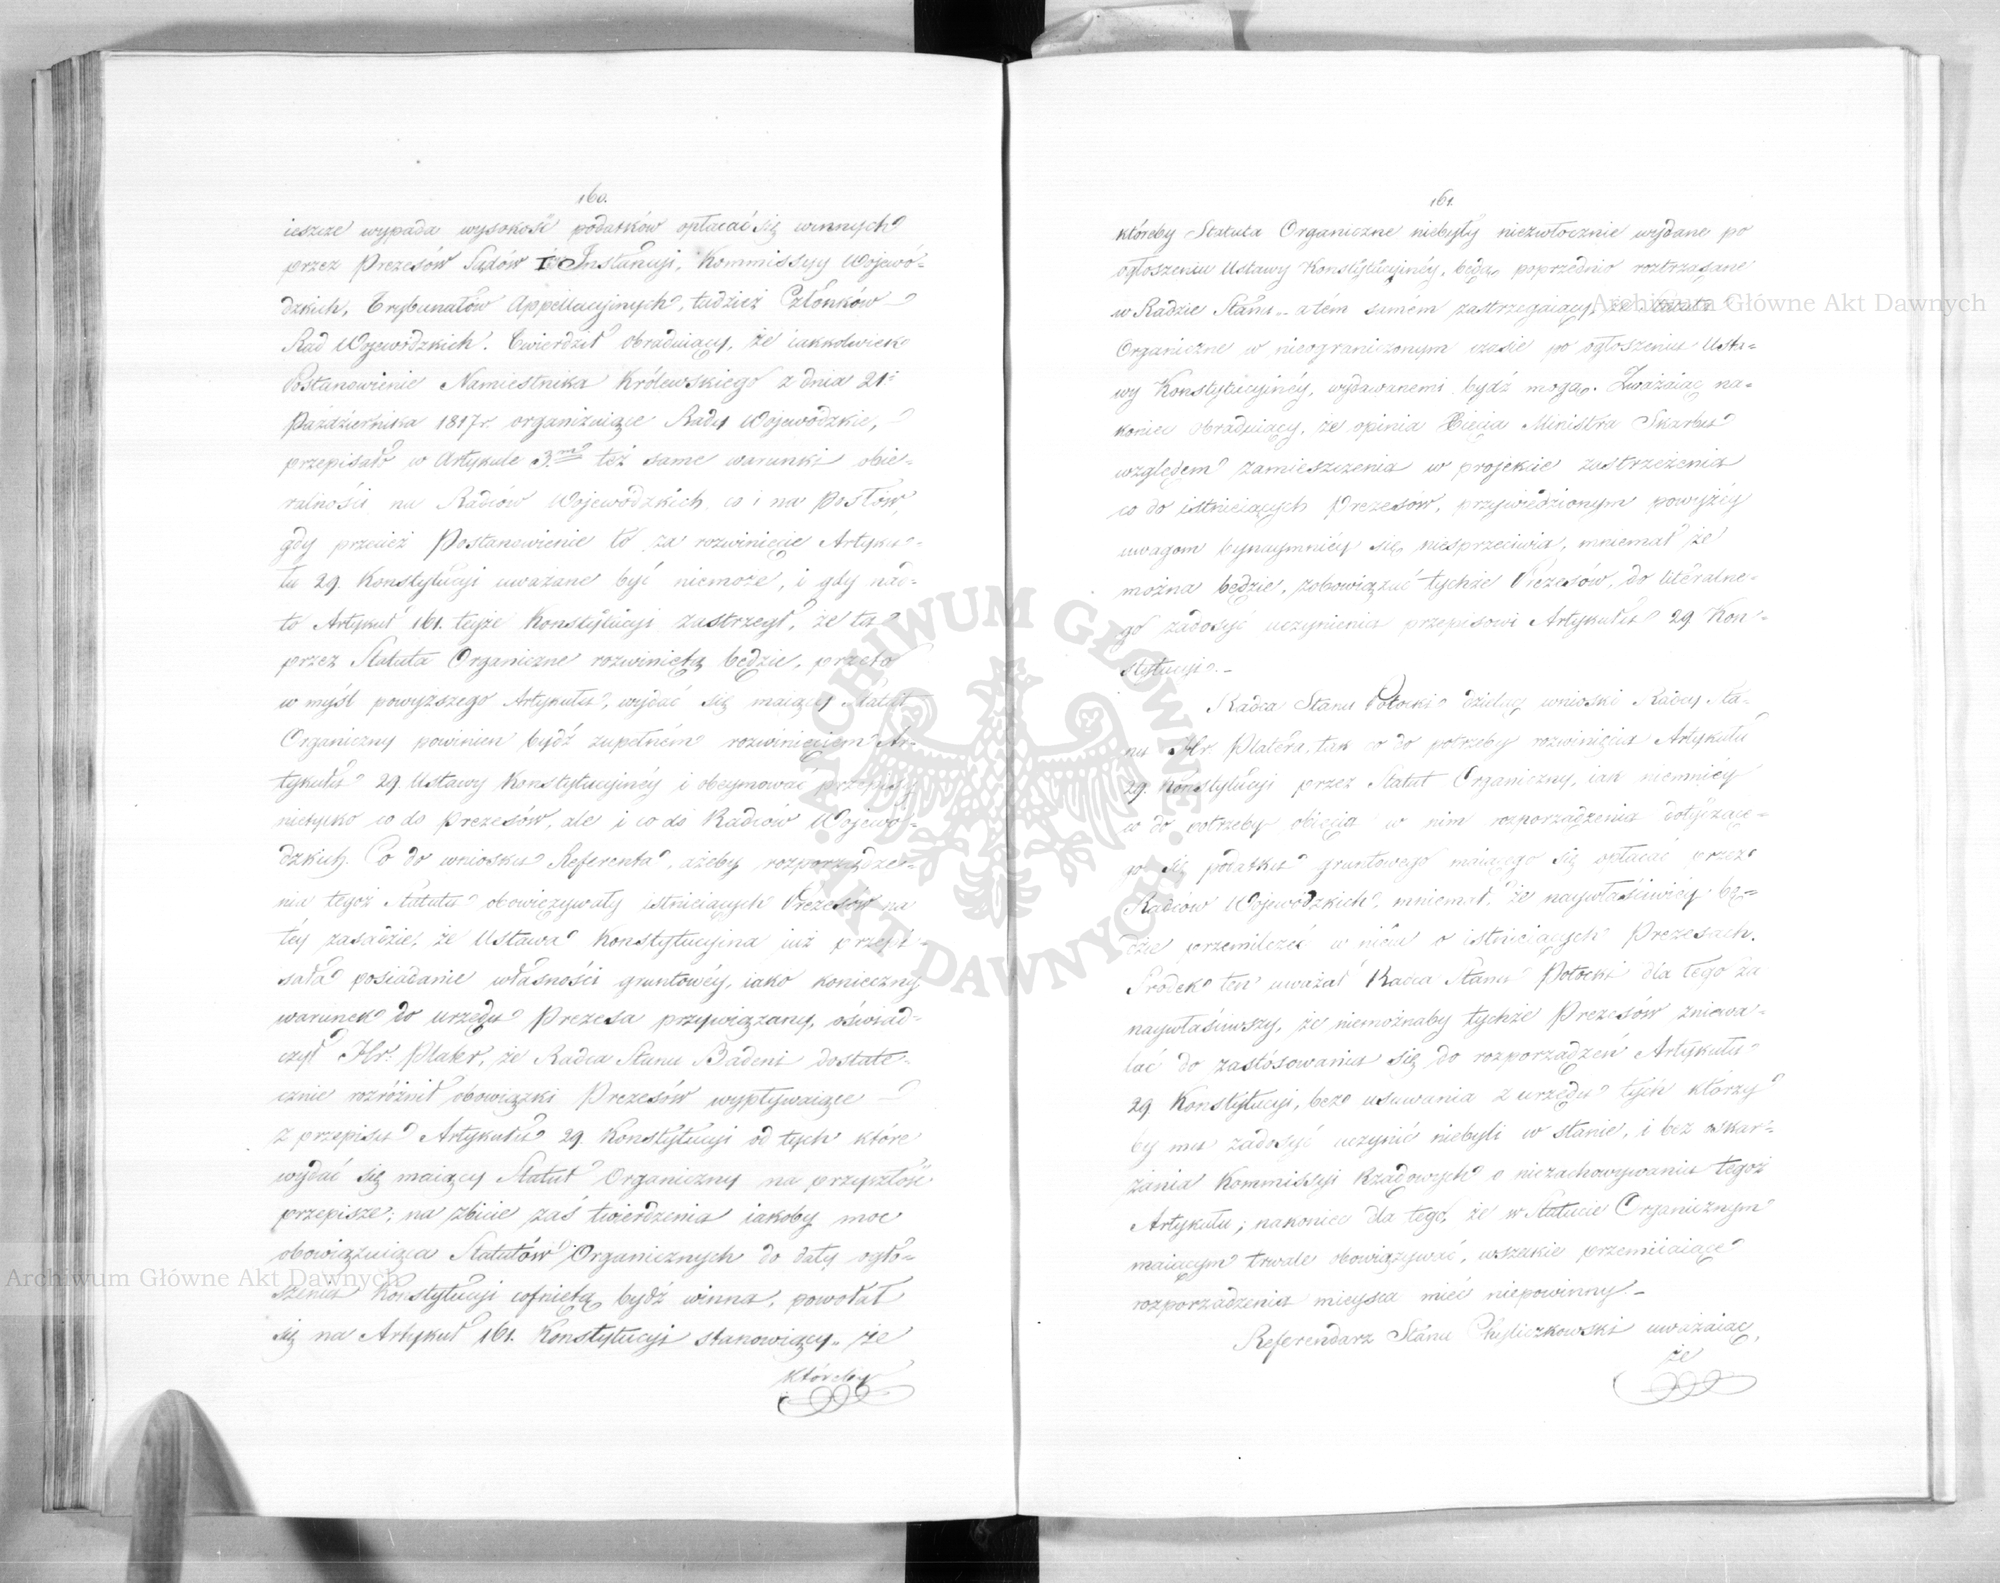 160.
ieszcze wypada wysokość podatków opłacać się winnych
przez Prezesów Sądów I Instancji, Kommissyy Wojewó-
dzkich, Trybunałów Appellacyjnych, tudzież Członków
Rad Wojewódzkich. Twierdził obraduiący, że iakkolwiek
Postanowienie Namiestnika Królewskiego z dnia 21
Października 1817 r. organizuiące Rady Wojewódzkie,
przepisało w Artykule 3.m też same warunki obie-
ralności na Radców Wojewódzkich co i na Posłów,
gdy przecież Postanowienie to za rozwinięcie Artyku-
łu 29. Konstytucyi uważane być niemoże, i gdy nad-
to Artykuł 161. teyże Konstytucyi zastrzegł, że ta
przez Statuta Organiczne rozwiniętą będzie, przeto
w myśl powyższego Artykułu, wydać się maiący Statut
Organiczny powinien bydź zupełném rozwinięciem Ar-
tykułu 29. Ustawy Konstytucyinéy i obeymować przepisy
nietylko co do Prezesów, ale i co do Radców Wojewó-
dzkich. Co do wniosku Referenta, ażeby rozporządze-
nia tegoż Statutu obowięzywały istnieiących Prezesów na
téy zasadzie, że Ustawa Konstytucyjna już przepi-
sała posiadanie własności gruntowéy, iako konieczny
warunek do urzędu Prezesa przywiązany, oświad-
czył Hr. Plater, że Radca Stanu Badeni dostate-
cznie rozróżnił obowiązki Prezesów wypływaiące
z przepisu Artykułu 29. Konstytucyi od tych które
wydać się maiący Statut Organiczny na przyszłość
przepisze; na zbicie zaś twierdzenia iakoby moc
obowiązuiąca Statutów Organicznych do daty ogło-
szenia Konstytucyi cofniętą bydź winna, powołał
się na Artykuł 161. Konstytucyi stanowiący, że
któreby
161.
któreby Statuta Organiczne niebyły niezwłocznie wydane po
ogłoszeniu Ustawy Konstytucyinéy, będą poprzednio roztrzasane
w Radzie Stanu, a tém samém zastrzegaiący, że Statuta
Organiczne w nieograniczonym czasie po ogłoszeniu Usta-
wy Konstytucyinéy, wydawanemi bydź mogą. Zważaiąc na-
koniec obraduiący, że opinia Xięcia Ministra Skarbu
względem zamieszczenia w projekcie zastrzeżenia
co do istnieiących Prezesów, przywiedzionym powyżéy
uwagom bynaymniéy się niesprzeciwia, mniemał że
można będzie, zobowiązać tychże Prezesów, do literalne-
go zadosyć uczynienia przepisowi Artykułu 29 Kon-
stytucyi.
Radca Stanu Potocki dzieląc wnioski Radcy Sta-
nu Hr. Platera, tak co do potrzeby rozwinięcia Artykułu
29. Konstytucyi przez Statut Organiczny, iak niemniéy
co do potrzeby obięcia w nim rozporządzenia dotyczące-
go się podatku gruntowego maiącego się opłacać przez
Radców Wojewódzkich, mniemał, że naywłaściwiéy bę-
dzie przemilczeć w nim o istnieiących Prezesach.
Środek ten uważał Radca Stanu Potocki dla tego za
naywłaściwszy, że niemożnaby tychże Prezesów zniewa-
lać do zastósowania się do rozporządzeń Artykułu
29 Konstytucyi, bez usuwania z urzędu tych którzy
by mu zadosyć uczynić niebyli w stanie, i bez oskar-
żania Kommissyi Rządowych o niezachowywania tegoż
Artykułu; nakoniec dla tego, że w Statucie Organicznym
maiącym trwale obowiązywać, wszelkie przemiiaiące
rozporządzenia mieysca mieć niepowinny.
Referendarz Stanu Chyliczkowski uważaiąc,
że